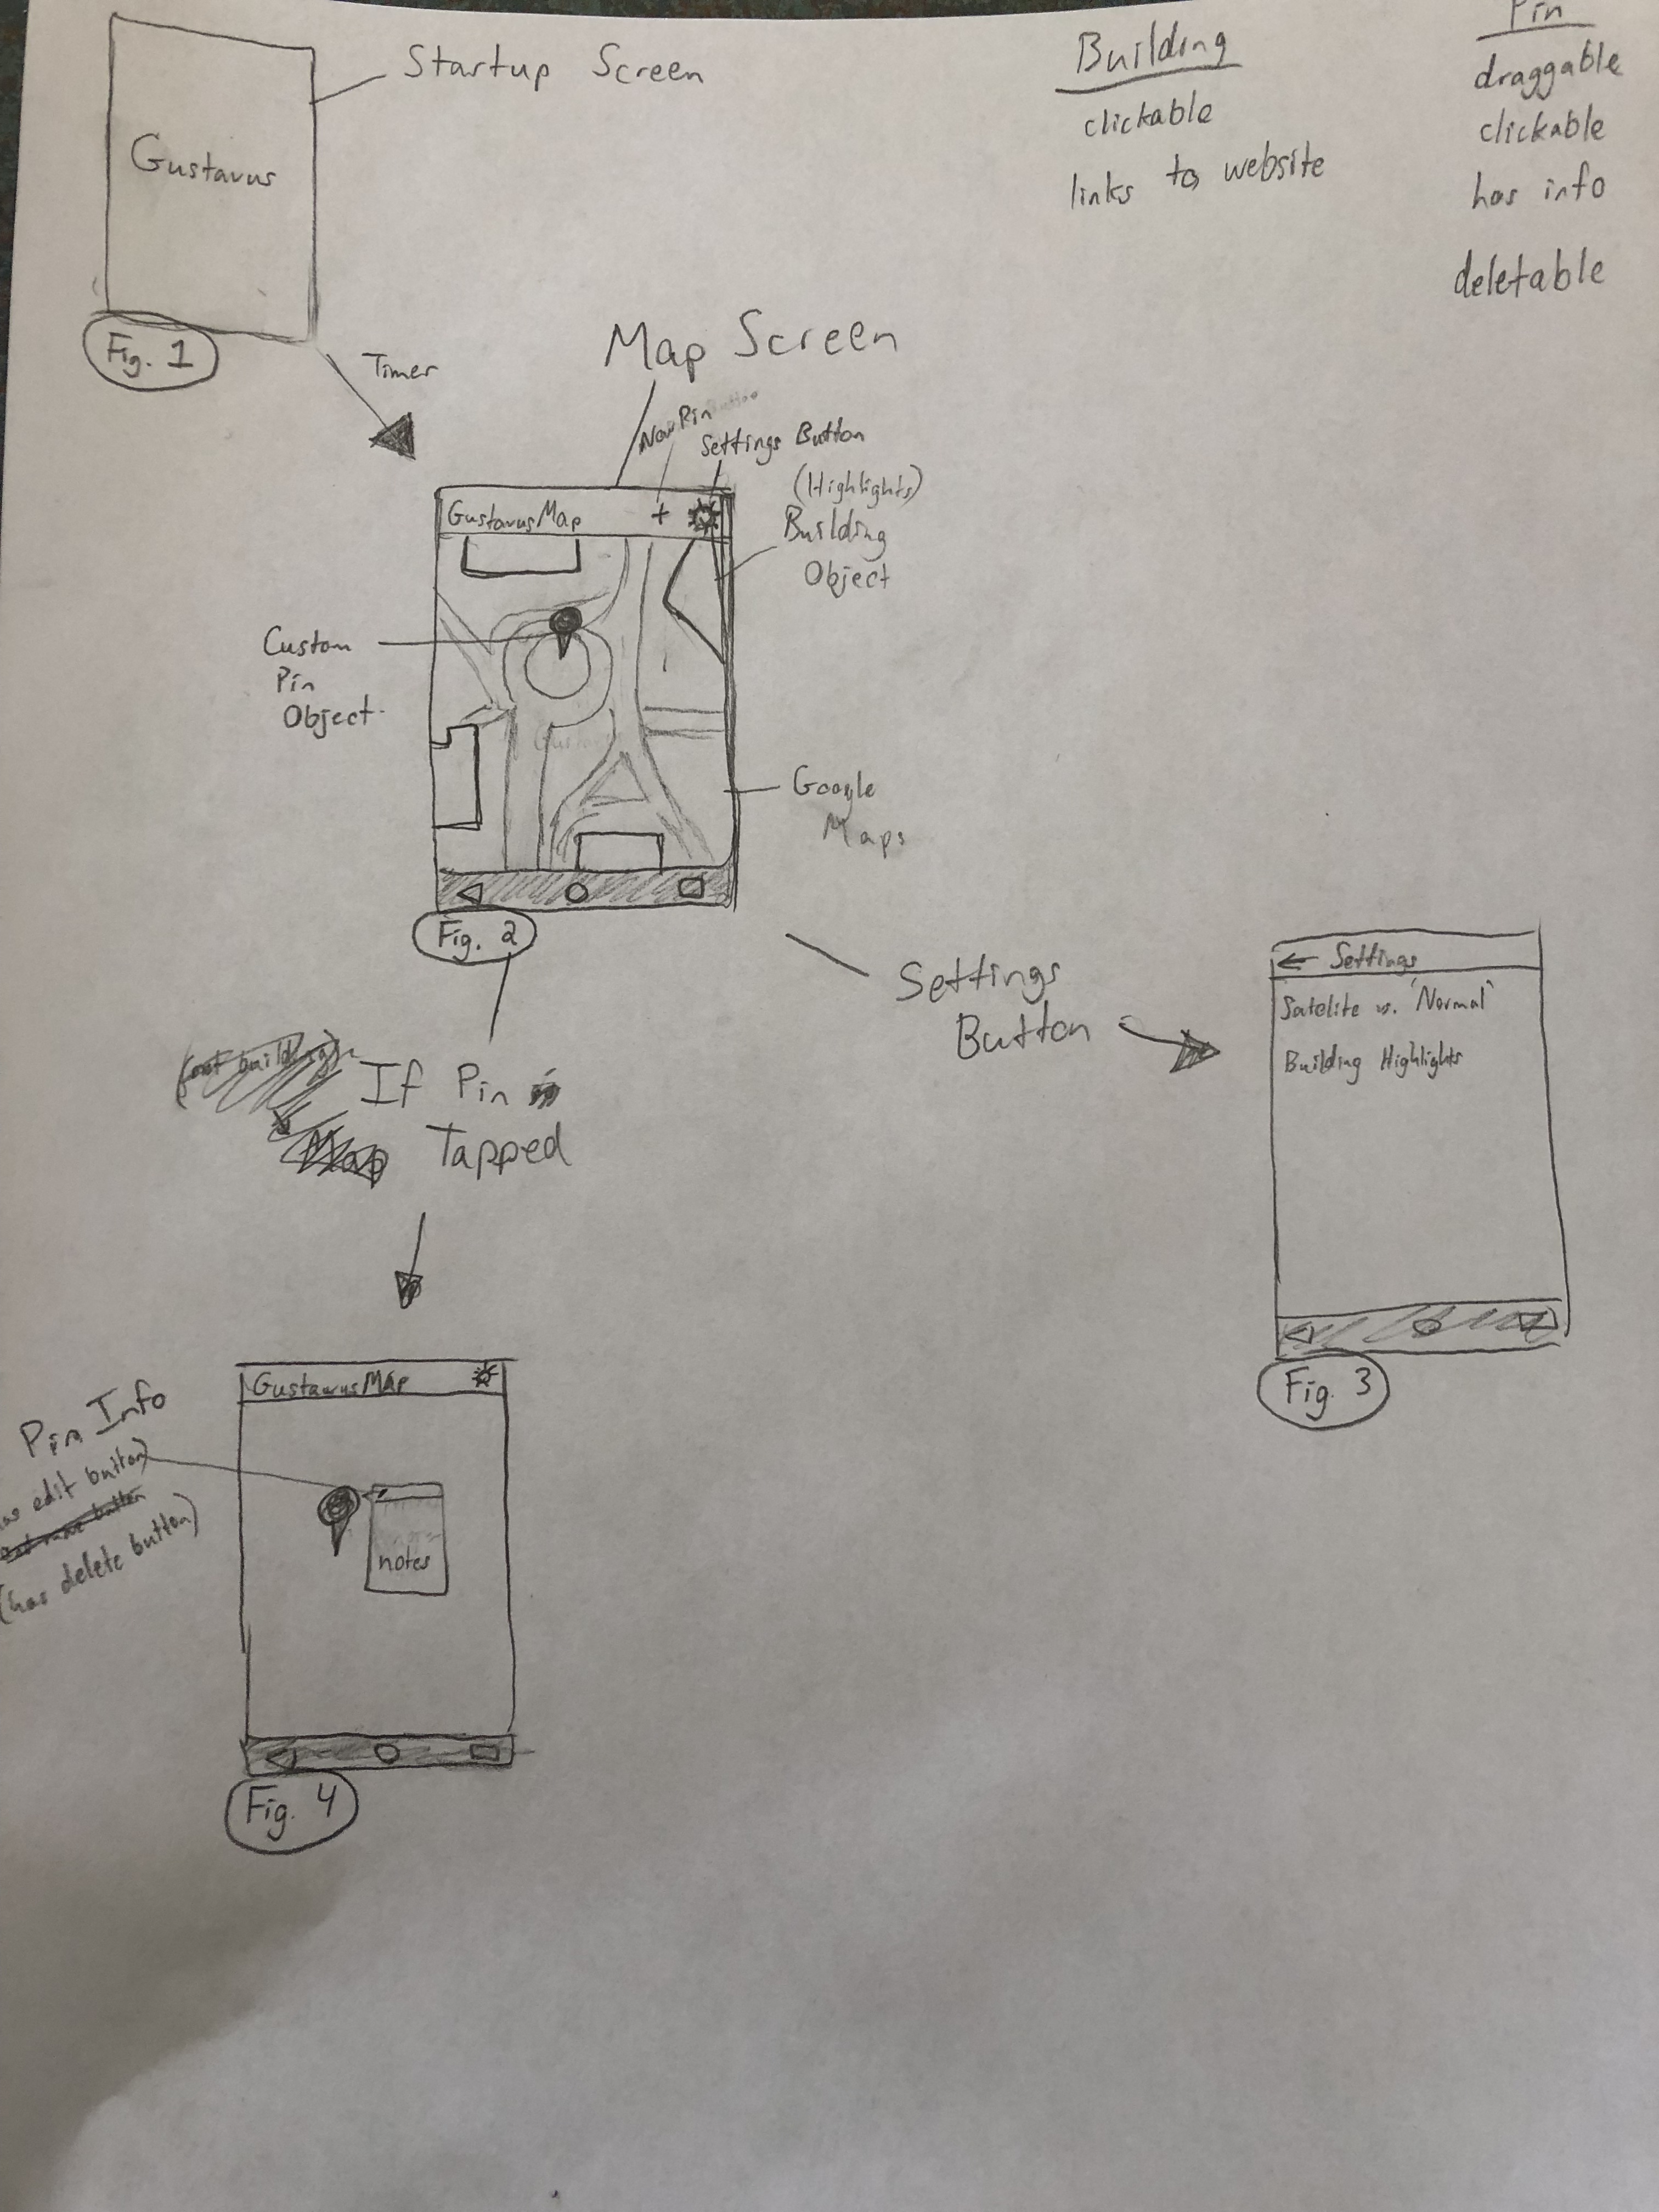 Startup Screen
Gustavus
Fig. 1
Timer
Building
clickable
links to website
Pin
draggable
clickable
has info
deletable
Map Screen
New Pin
Settings Button
(Highlights)
Building
Object
GustavusMap +
Custom
Pin
Object
Google
Maps
Fig. 2
Settings
Button
← Settings
Satelite vs. "Normal"
Building Highlights
Fig. 3
If Pin
Tapped
Map
GustavusMap
Pin Info
edit button)
(has delete button)
notes
Fig. 4